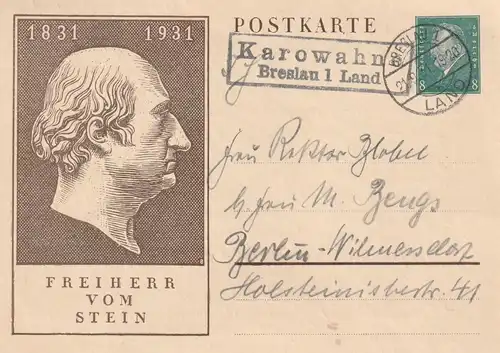 1831 1931
FREIHERR
VOM
STEIN
POSTKARTE
Karowahn
Breslau 1 Land
BRESLAU 1
LAND
8 8
Frau Rektor Zlobel
b. Frau M. Bengs
Berlin-Wilmersdorf
Holsteinischestr. 41